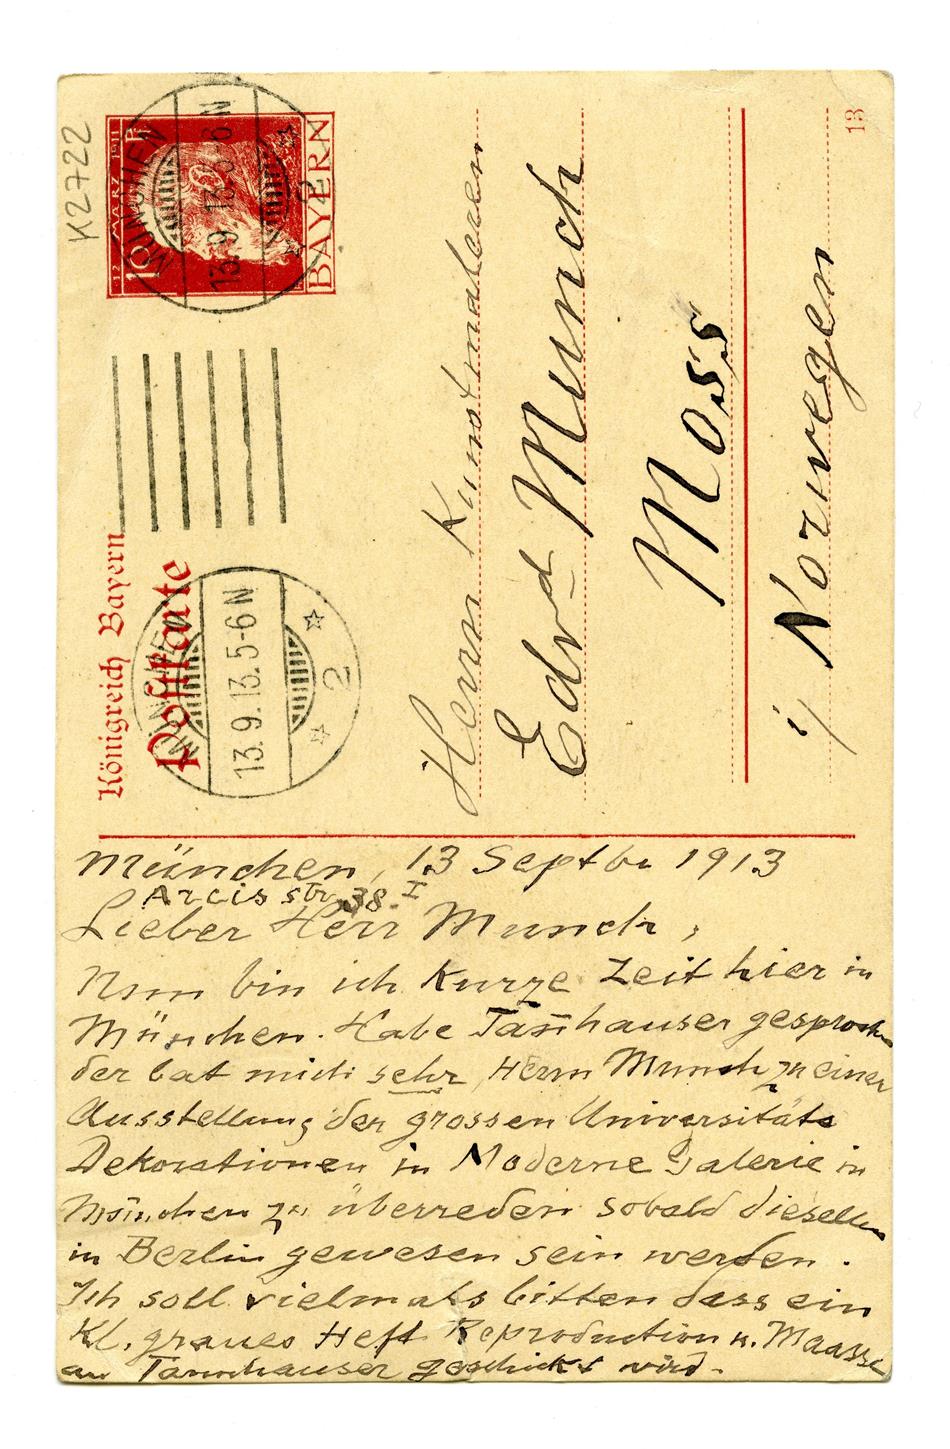 K2722
12 MÄRZ 1911
10 Pf
BAYERN
MÜNCHEN
13.9.13.5-6N
2
Königreich Bayern
Postkarte
MÜNCHEN
13.9.13.5-6N
2
Herrn Kunstmaleren
Edvd Munch
Moss
i/ Norwegen
13
München, 13 Septbr 1913
Arcisstr. 38. I
Lieber Herr Munch,
Nun bin ich kurze Zeit hier in
München. Habe Tannhauser gesproch
der bat mich sehr, Herrn Munch zu einer
Ausstellung der grossen Universitäts
Dekorationen in Moderne Galerie in
München zu überreden sobald dieselben
in Berlin gewesen sein werden.
Ich soll vielmals bitten dass ein
Kl. graues Heft Reproduction u. Maasse
an Tannhauser geschickt wird.